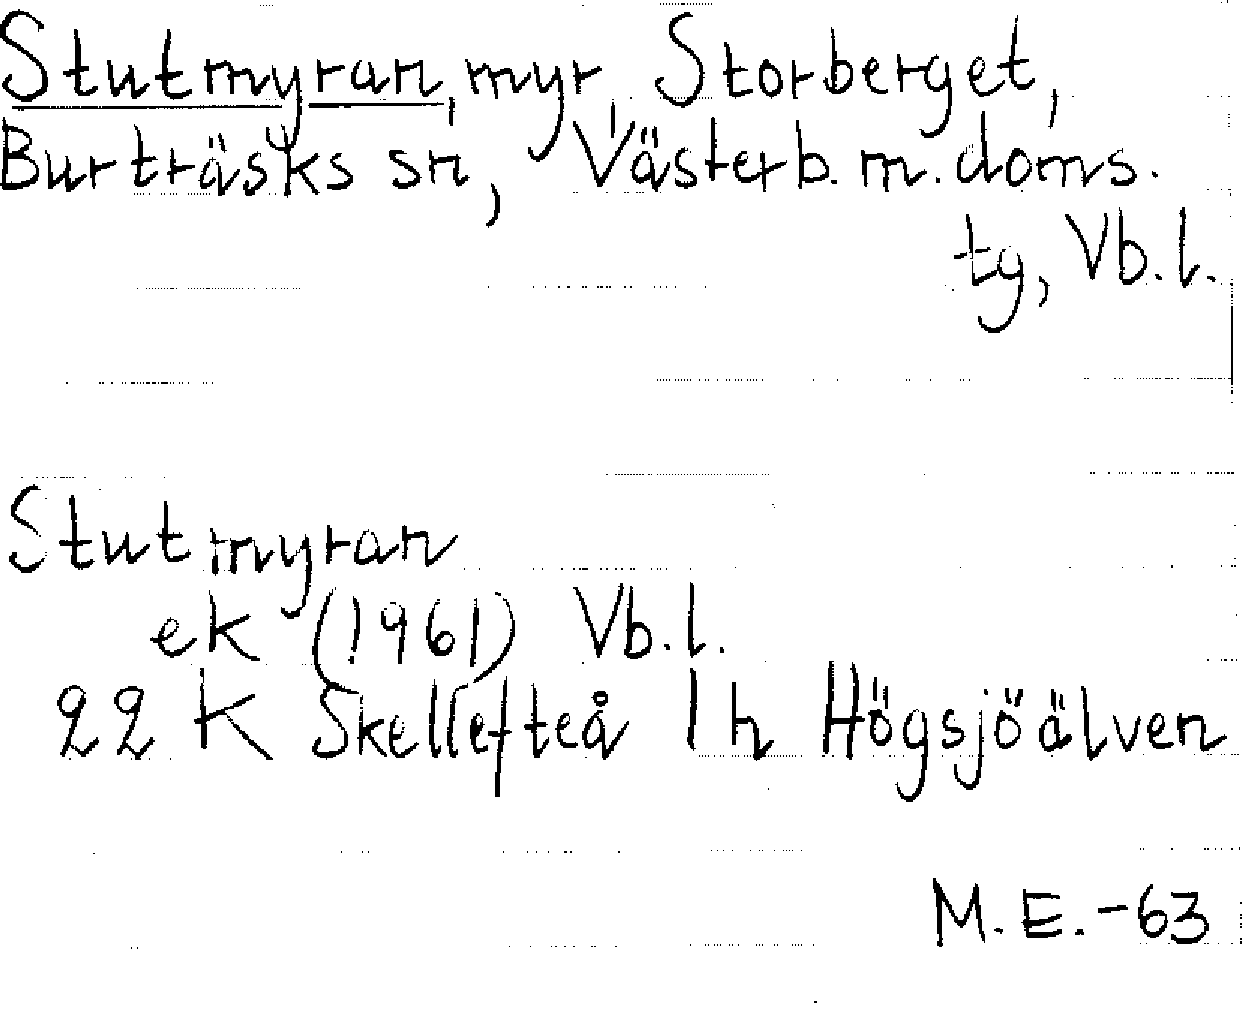 Stutmyran, myr, Storberget,
Burträsks sn, Västerb. m. doms.
tg, Vb. l.
Stutmyran
ek (1961) Vb. l.
22 K Skellefteå 1 h Högsjöälven
M. E. -63